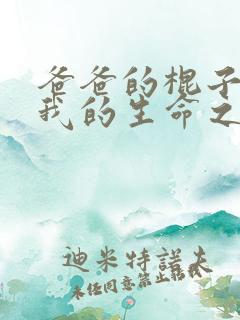 爸爸的棍子
我的生命之
迪米特诺夫
未任同意禁止转载